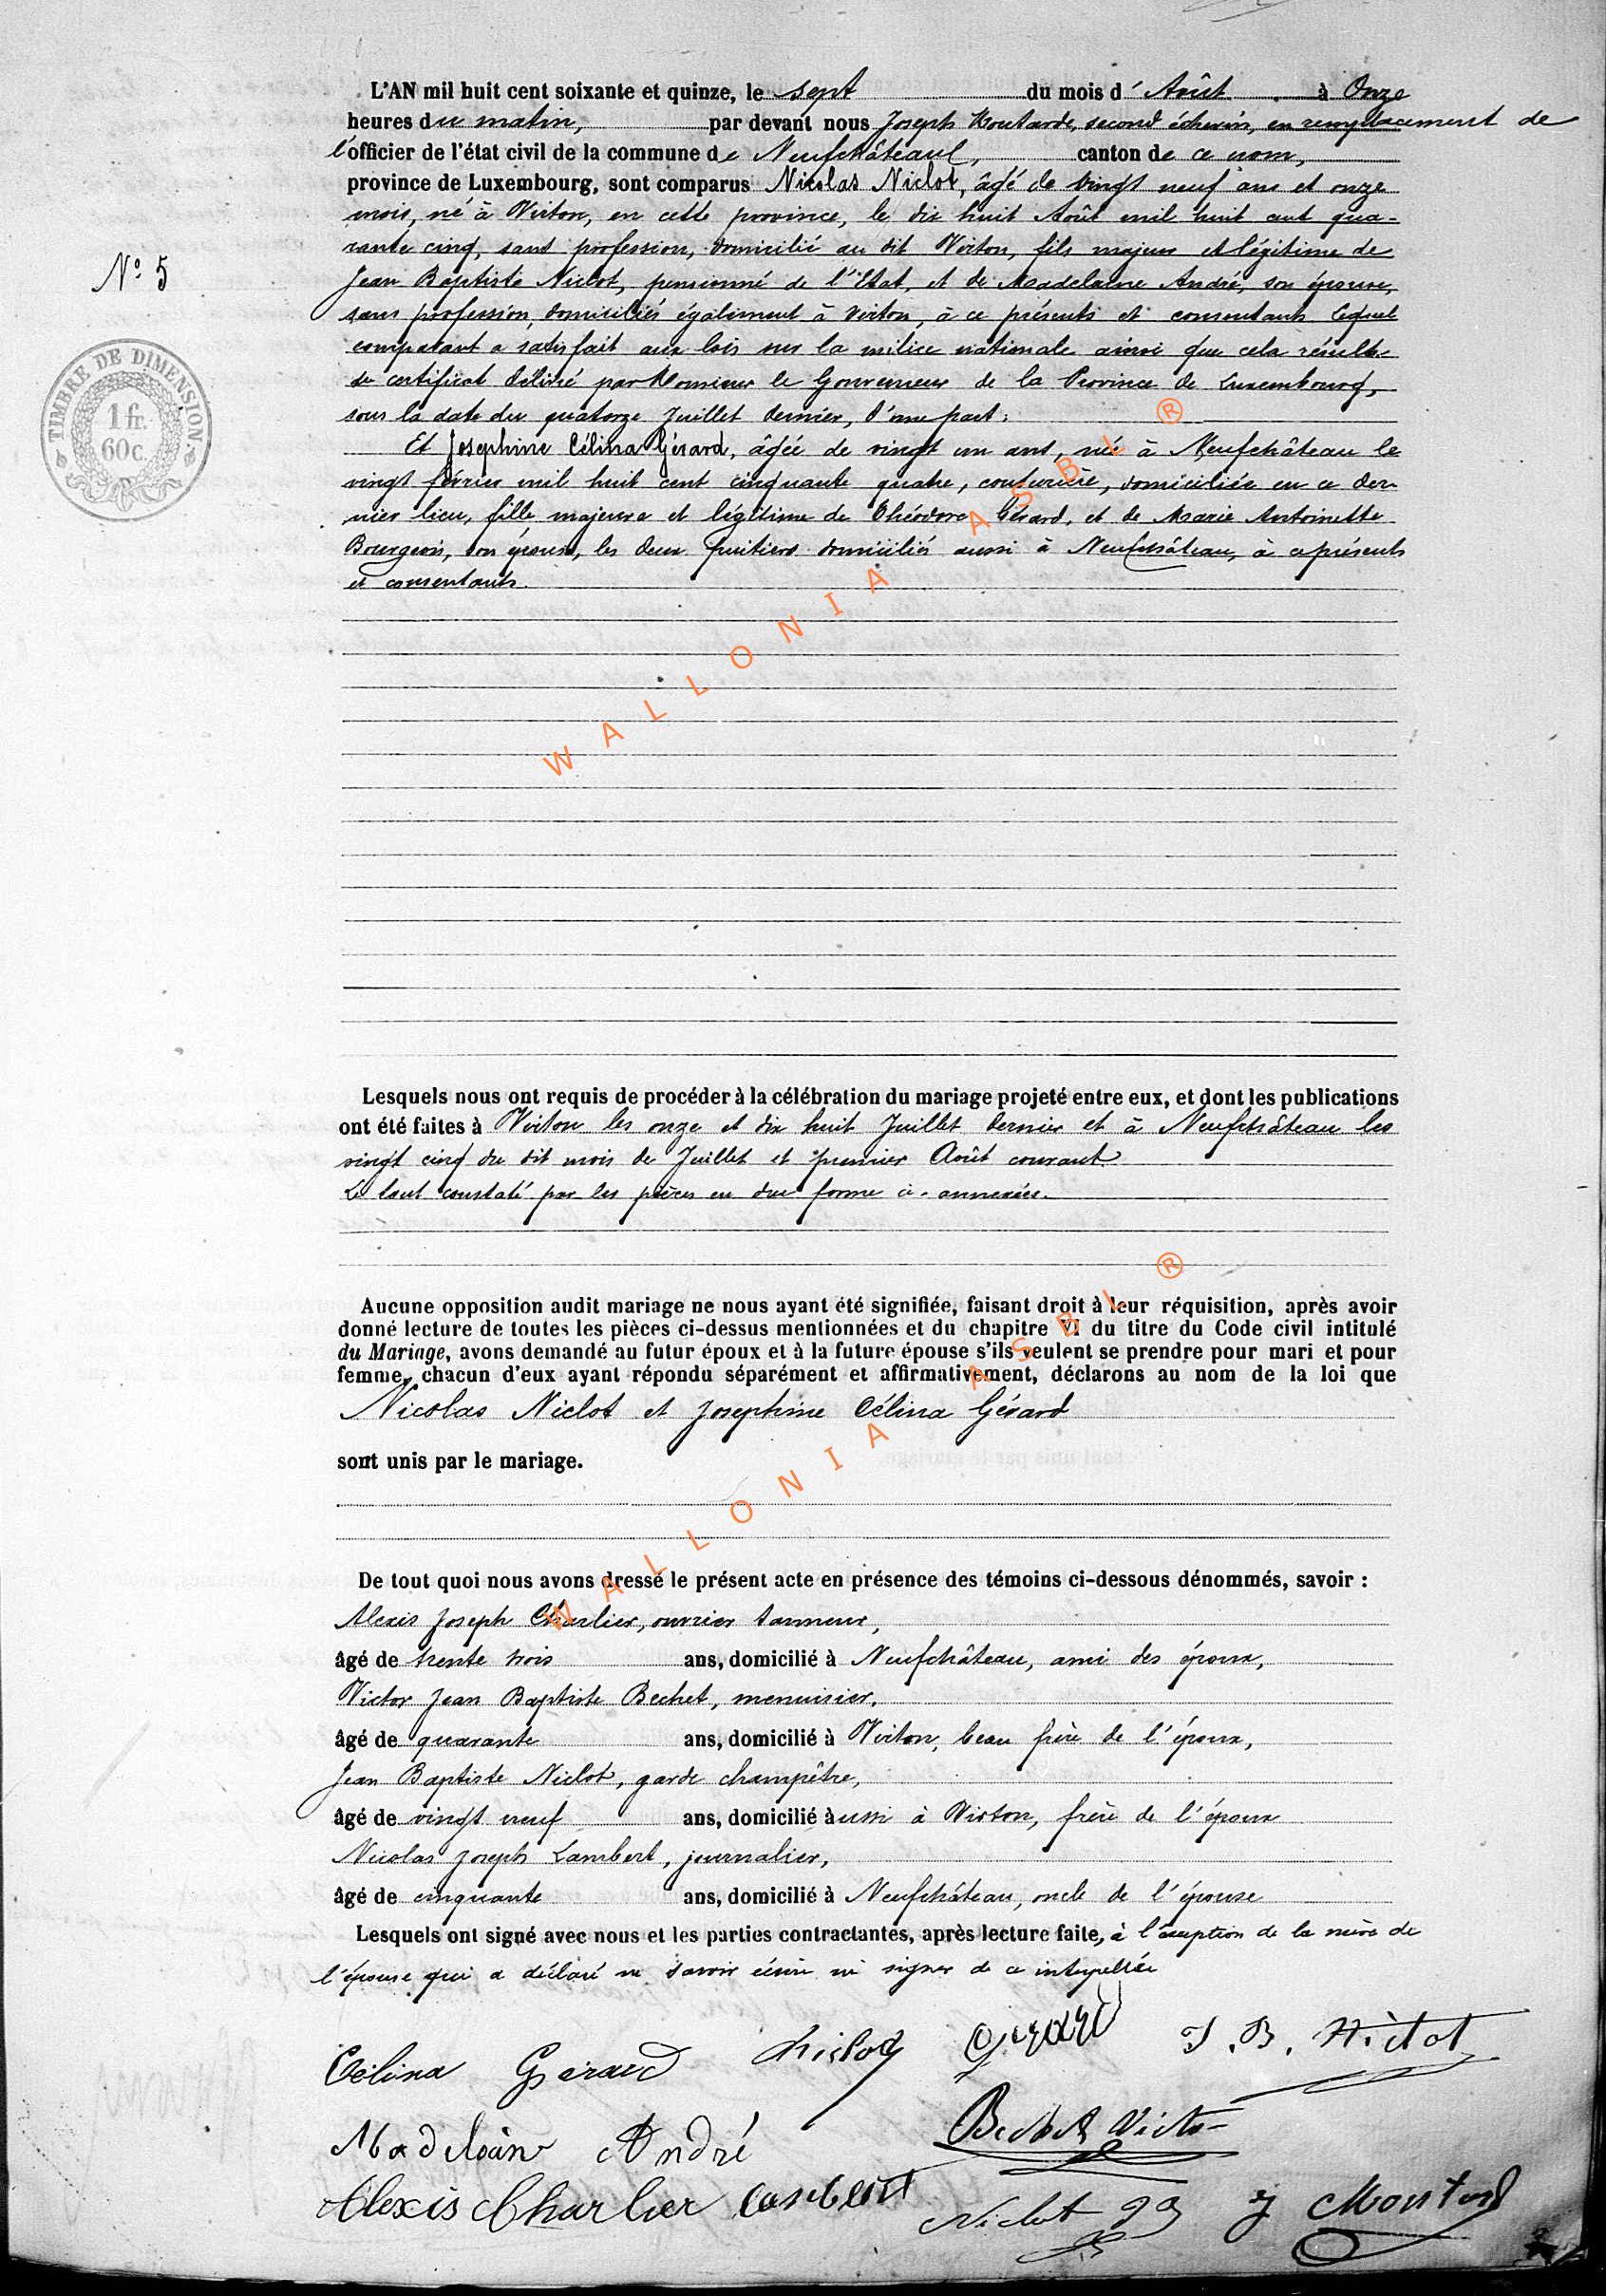 L'AN mil huit cent soixante et quinze, le sept du mois d'Août à Onze
heures du matin, par devant nous Joseph Moutarde, second échevin, en remplacement de
l'officier de l'état civil de la commune de Neufchâteau, canton de ce nom,
province de Luxembourg, sont comparus Nicolas Niclot, âgé de vingt neuf ans et onze
mois, né à Virton, en cette province, le dix huit Août mil huit cent qua-
rante cinq, sans profession, domicilié au dit Virton, fils majeur et légitime de
Jean Baptiste Niclot, pensionné de l'Etat, et de Madelaine André, son épouse,
sans profession, domiciliés également à Virton, à ce présents et consentants lequel
comparant a satisfait aux lois sur la milice nationale ainsi que cela résulte
du certificat délivré par Monsieur le Gouverneur de la Province de Luxembourg,
sous la date du quatorze Juillet dernier, d'une part;
Et Josephine Célina Gérard, âgée de vingt un ans, née à Neufchâteau le
vingt février mil huit cent cinquante quatre, couturière, domiciliée en ce der-
nier lieu, fille majeure et légitime de Théodore Gérard, et de Marie Antoinette
Bourgeois, son épouse, les deux domiciliés aussi à Neufchâteau, à ce présents
et consentants.
N° 5
TIMBRE DE DIMENSION
1 fr.
60 c.
WALLONIA ASBL ®
Lesquels nous ont requis de procéder à la célébration du mariage projeté entre eux, et dont les publications
ont été faites à Virton les onze et dix huit Juillet dernier et à Neufchâteau les
vingt cinq du dit mois de Juillet et premier Août courant.
Le tout constaté par les pièces en due forme ci-annexées.
Aucune opposition audit mariage ne nous ayant été signifiée, faisant droit à leur réquisition, après avoir
donné lecture de toutes les pièces ci-dessus mentionnées et du chapitre VI du titre du Code civil intitulé
du Mariage, avons demandé au futur époux et à la future épouse s'ils veulent se prendre pour mari et pour
femme, chacun d'eux ayant répondu séparément et affirmativement, déclarons au nom de la loi que
Nicolas Niclot et Josephine Célina Gérard
sont unis par le mariage.
WALLONIA ASBL ®
De tout quoi nous avons dressé le présent acte en présence des témoins ci-dessous dénommés, savoir :
Alexis Joseph Charlier, ouvrier tanneur,
âgé de trente trois ans, domicilié à Neufchâteau, ami des époux,
Victor Jean Baptiste Bechet, menuisier,
âgé de quarante ans, domicilié à Virton, beau frère de l'époux,
Jean Baptiste Niclot, garde champêtre,
âgé de vingt neuf ans, domicilié aussi à Virton, frère de l'époux
Nicolas Joseph Lambert, journalier,
âgé de cinquante ans, domicilié à Neufchâteau, oncle de l'épouse
Lesquels ont signé avec nous et les parties contractantes, après lecture faite, à l'exception de la mère de
l'épouse qui a déclaré ne savoir écrire ni signer de ce interpellée
Célina Gérard Niclot Gérard J. B. Niclot
Madelaine André Bechet Victor
Alexis Charlier Lambert Niclot J Moutard